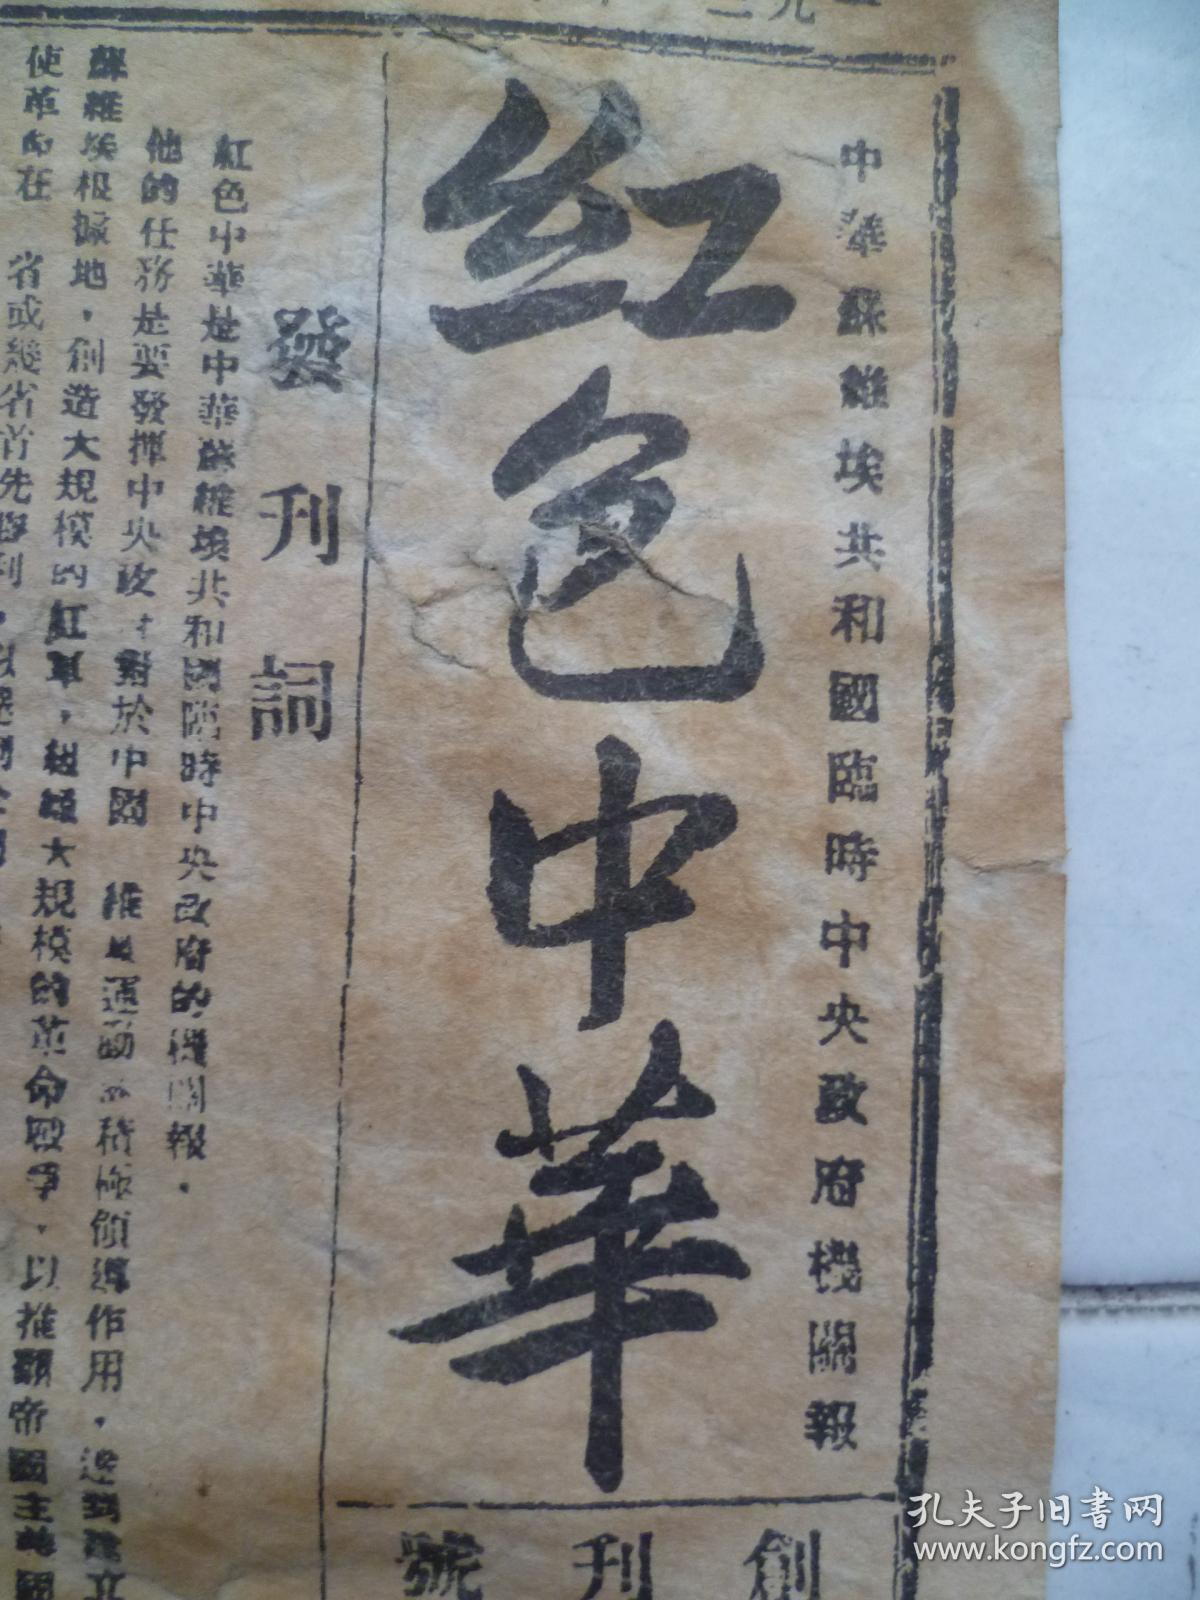 中華蘇維埃共和國臨時中央政府機關報
紅色中華
創刊號
發刊詞
紅色中華是中華蘇維埃共和國臨時中央政府的機關報．
他的任務是要發揮中央政 對於中國 維 運動 積極領導作用．達到建立
蘇維埃根據地，創造大規模的紅軍，組織大規模的革命戰爭，以推翻帝國主義國
使革命在 省或幾省首先勝利，以
孔夫子旧書网
www.kongfz.com